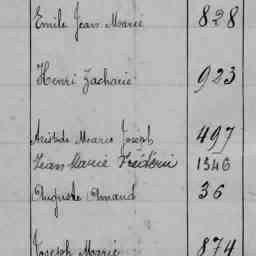 Emile Jean Marie 828
Henri Zacharie 923
Aristide Marie Joseph 497
Jean Marie Frédéric 1346
Auguste Amand 36
Joseph Marie 874